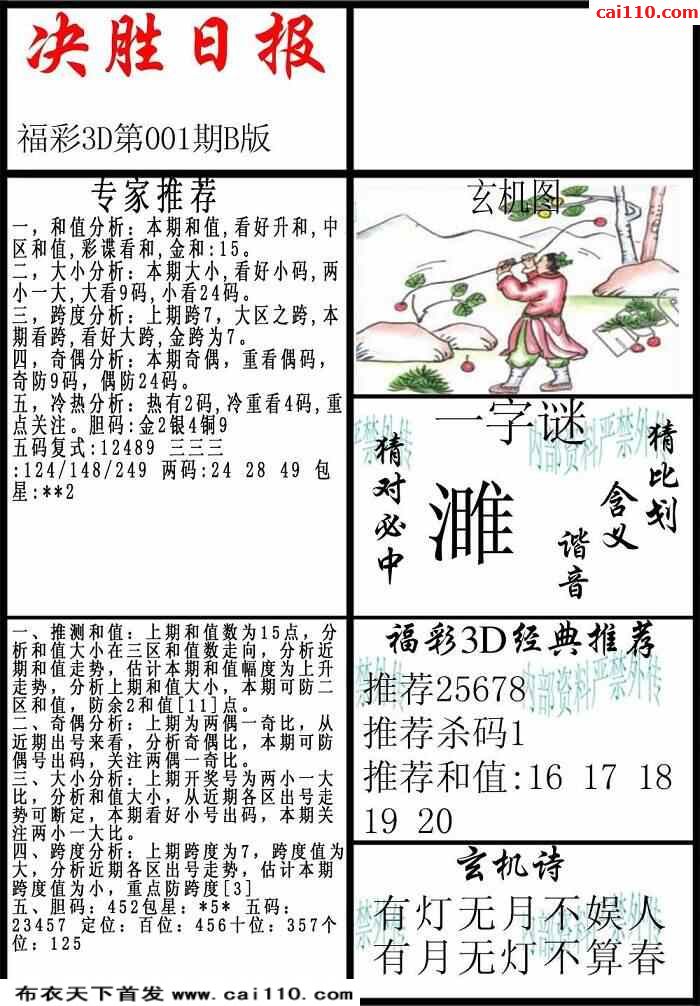 cai110.com
决胜日报
福彩3D第001期B版
专家推荐
一，和值分析：本期和值,看好升和,中
区和值,彩谍看和,金和:15。
二，大小分析：本期大小,看好小码,两
小一大,大看9码,小看24码。
三，跨度分析：上期跨7，大区之跨,本
期看跨,看好大跨,金跨为7。
四，奇偶分析：本期奇偶，重看偶码，
奇防9码，偶防24码。
五，冷热分析：热有2码,冷重看4码,重
点关注。胆码:金2银4铜9
五码复式:12489 三三三
:124/148/249 两码:24 28 49 包
星:**2
一、推测和值：上期和值数为15点，分
析和值大小在三区和值数走向，分析近
期和值走势，估计本期和值幅度为上升
走势，分析上期和值大小，本期可防二
区和值，防余2和值[11]点。
二、奇偶分析：上期为两偶一奇比，从
近期出号来看，分析奇偶比，本期可防
偶号出码，关注两偶一奇比。
三、大小分析：上期开奖号为两小一大
比，分析和值大小，从近期各区出号走
势可断定，本期看好小号出码，本期关
注两小一大比。
四、跨度分析：上期跨度为7，跨度值为
大，分析近期各区出号走势，估计本期
跨度值为小，重点防跨度[3]
五、胆码：452包星：*5* 五码：
23457 定位：百位：456十位：357个
位：125
玄机图
一字谜
内部资料严禁外传
猜对必中
濉
谐音
含义
猜比划
福彩3D经典推荐
内部资料严禁外传
推荐25678
推荐杀码1
推荐和值:16 17 18
19 20
玄机诗
有灯无月不娱人
有月无灯不算春
布衣天下首发 www.cai110.com